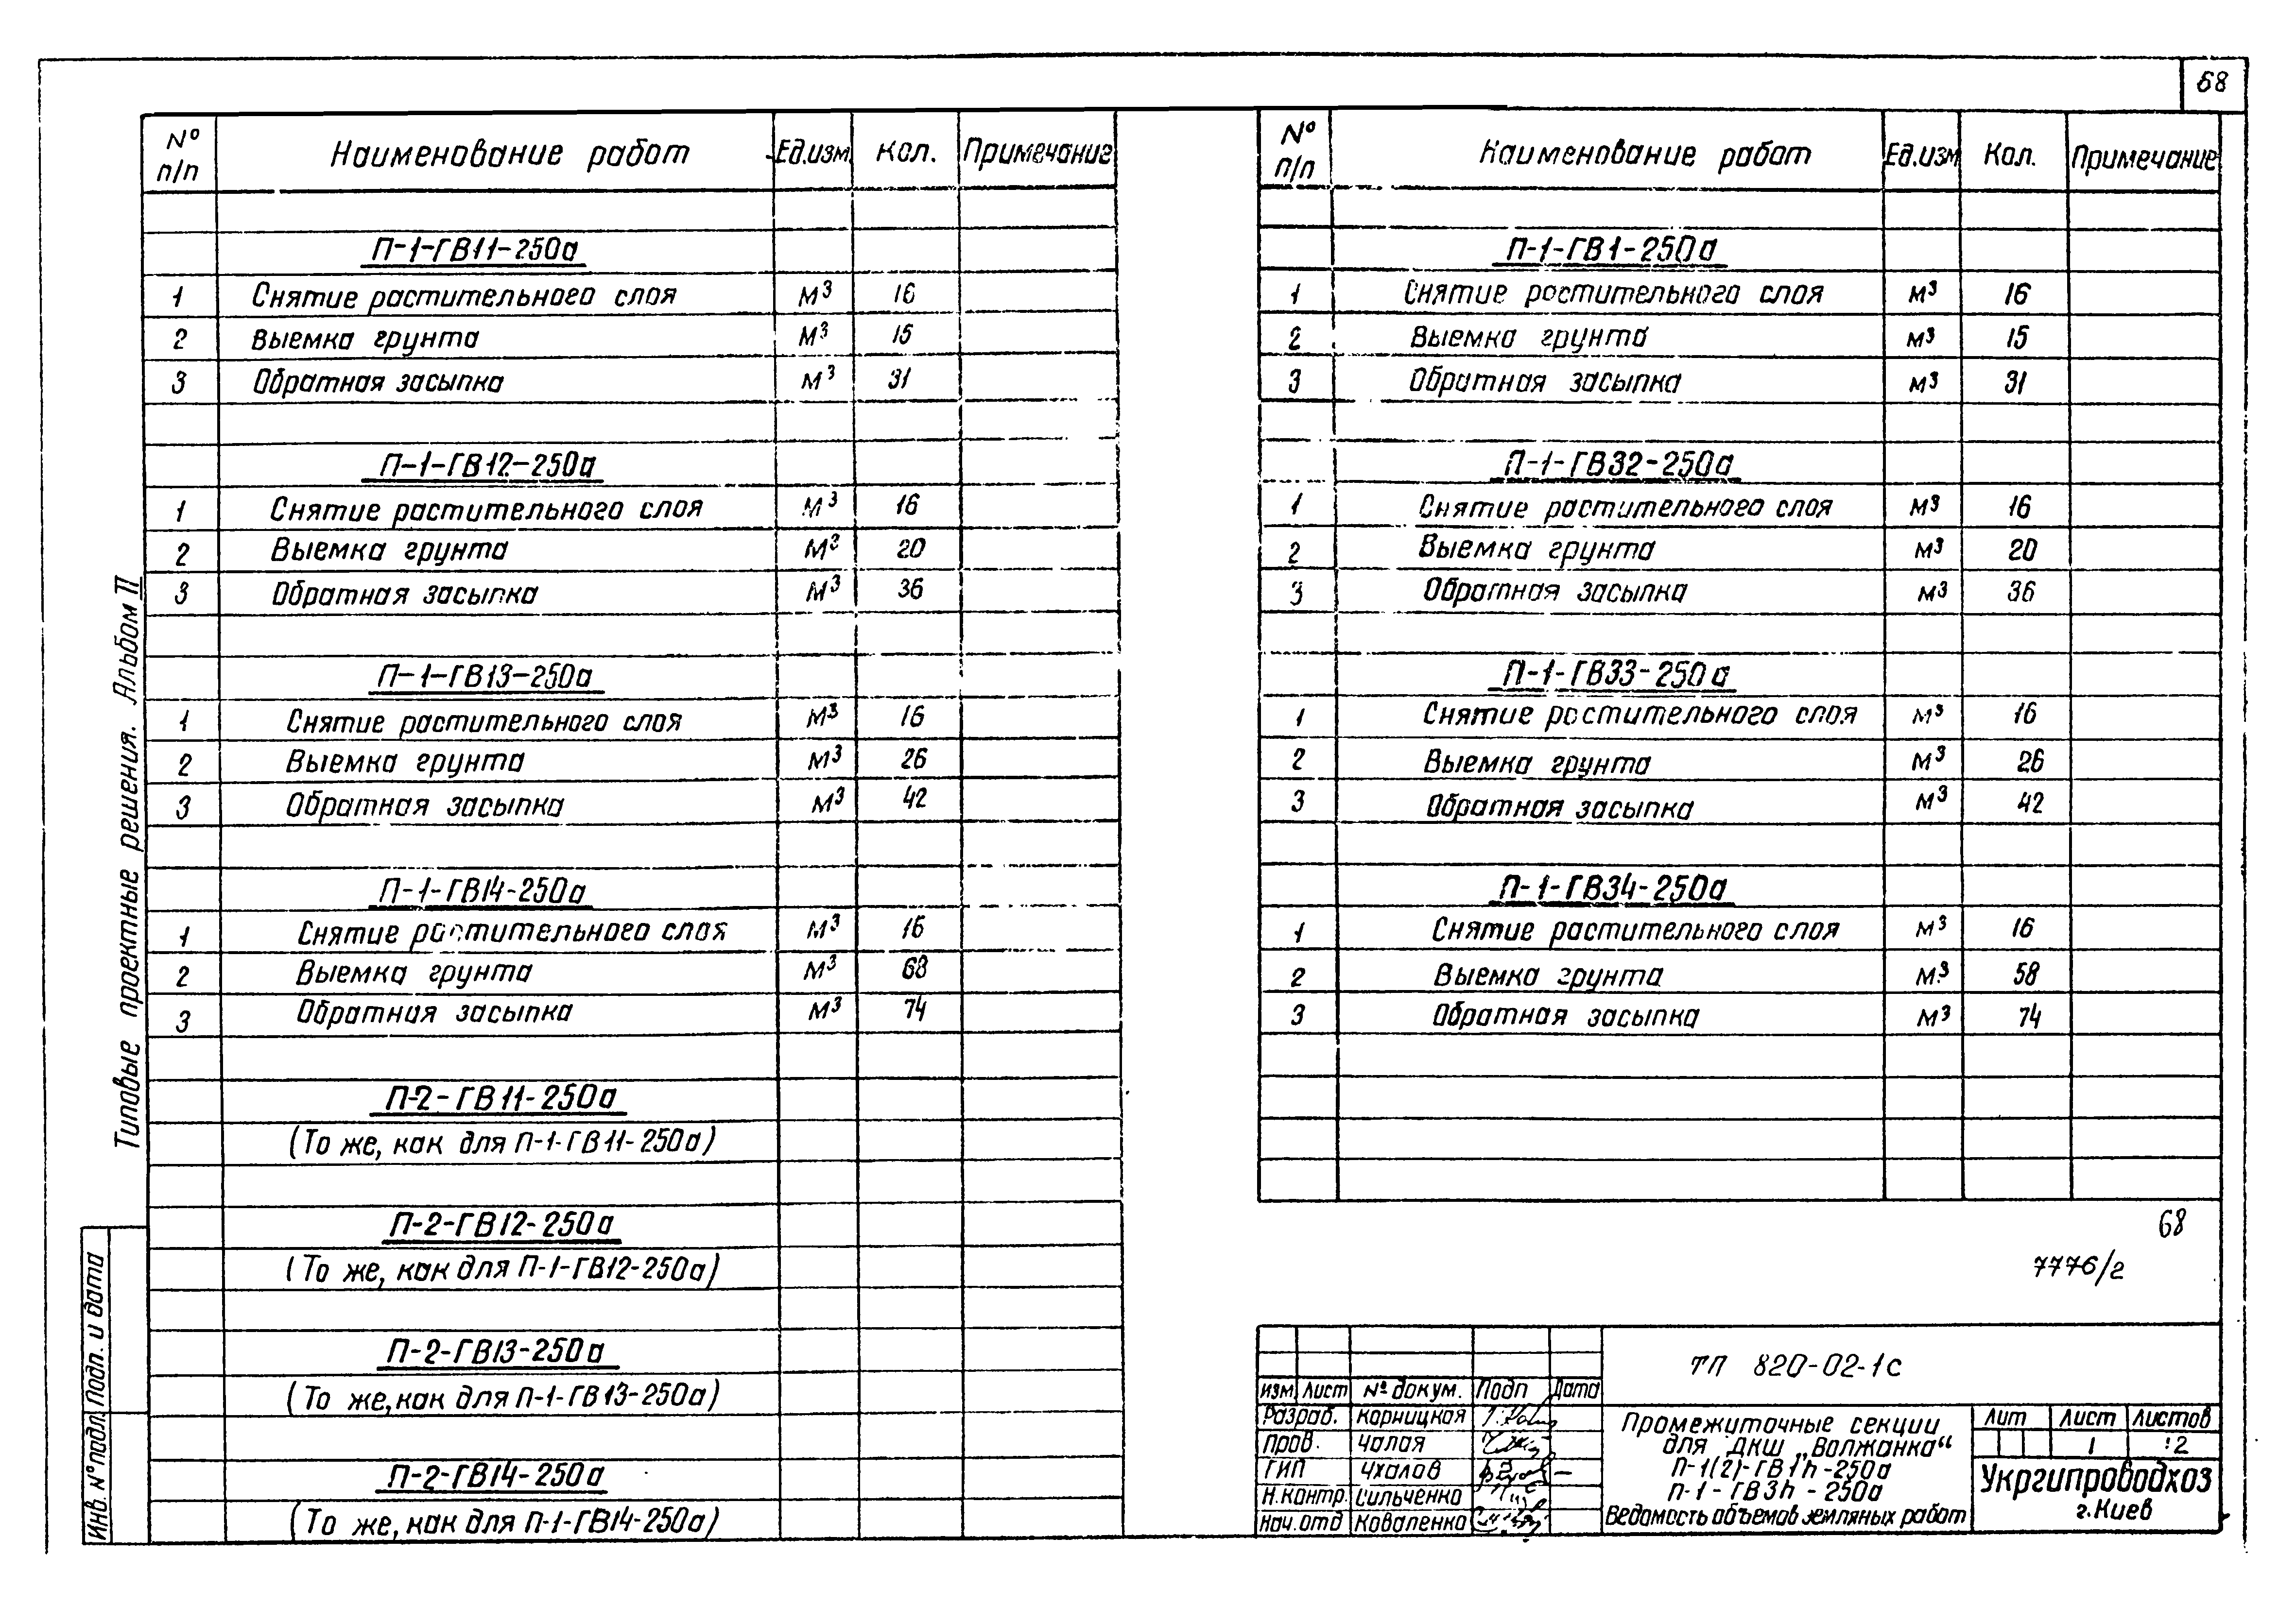 68
№ п/п Наименование работ Ед.изм. Кол. Примечание
П-1-ГВ11-250а
1 Снятие растительного слоя м³ 16
2 Выемка грунта м³ 15
3 Обратная засыпка м³ 31
П-1-ГВ12-250а
1 Снятие растительного слоя м³ 16
2 Выемка грунта м³ 20
3 Обратная засыпка м³ 36
П-1-ГВ13-250а
1 Снятие растительного слоя м³ 16
2 Выемка грунта м³ 26
3 Обратная засыпка м³ 42
П-1-ГВ14-250а
1 Снятие растительного слоя м³ 16
2 Выемка грунта м³ 68
3 Обратная засыпка м³ 74
П-2-ГВ11-250а
(То же, как для П-1-ГВ11-250а)
П-2-ГВ12-250а
(То же, как для П-1-ГВ12-250а)
П-2-ГВ13-250а
(То же, как для П-1-ГВ13-250а)
П-2-ГВ14-250а
(То же, как для П-1-ГВ14-250а)
№ п/п Наименование работ Ед.изм Кол. Примечание
П-1-ГВ1-250а
1 Снятие растительного слоя м³ 16
2 Выемка грунта м³ 15
3 Обратная засыпка м³ 31
П-1-ГВ32-250а
1 Снятие растительного слоя м³ 16
2 Выемка грунта м³ 20
3 Обратная засыпка м³ 36
П-1-ГВ33-250а
1 Снятие растительного слоя м³ 16
2 Выемка грунта м³ 26
3 Обратная засыпка м³ 42
П-1-ГВ34-250а
1 Снятие растительного слоя м³ 16
2 Выемка грунта м³ 58
3 Обратная засыпка м³ 74
68
7776/2
Типовые проектные решения. Альбом II
Инв. № подл. Подп. и дата
ТП 820-02-1с
Изм. Лист № докум. Подп Дата
Разраб. Корницкая
Пров. Чалая
ГИП Чхалов
Н.контр. Сильченко
Нач.отд Коваленко
Промежуточные секции
для ДКШ „Волжанка“
П-1(2)-ГВ1h-250а
П-1-ГВ3h-250а
Ведомость объемов земляных работ
Лит Лист Листов
1 2
Укргипроводхоз
г.Киев